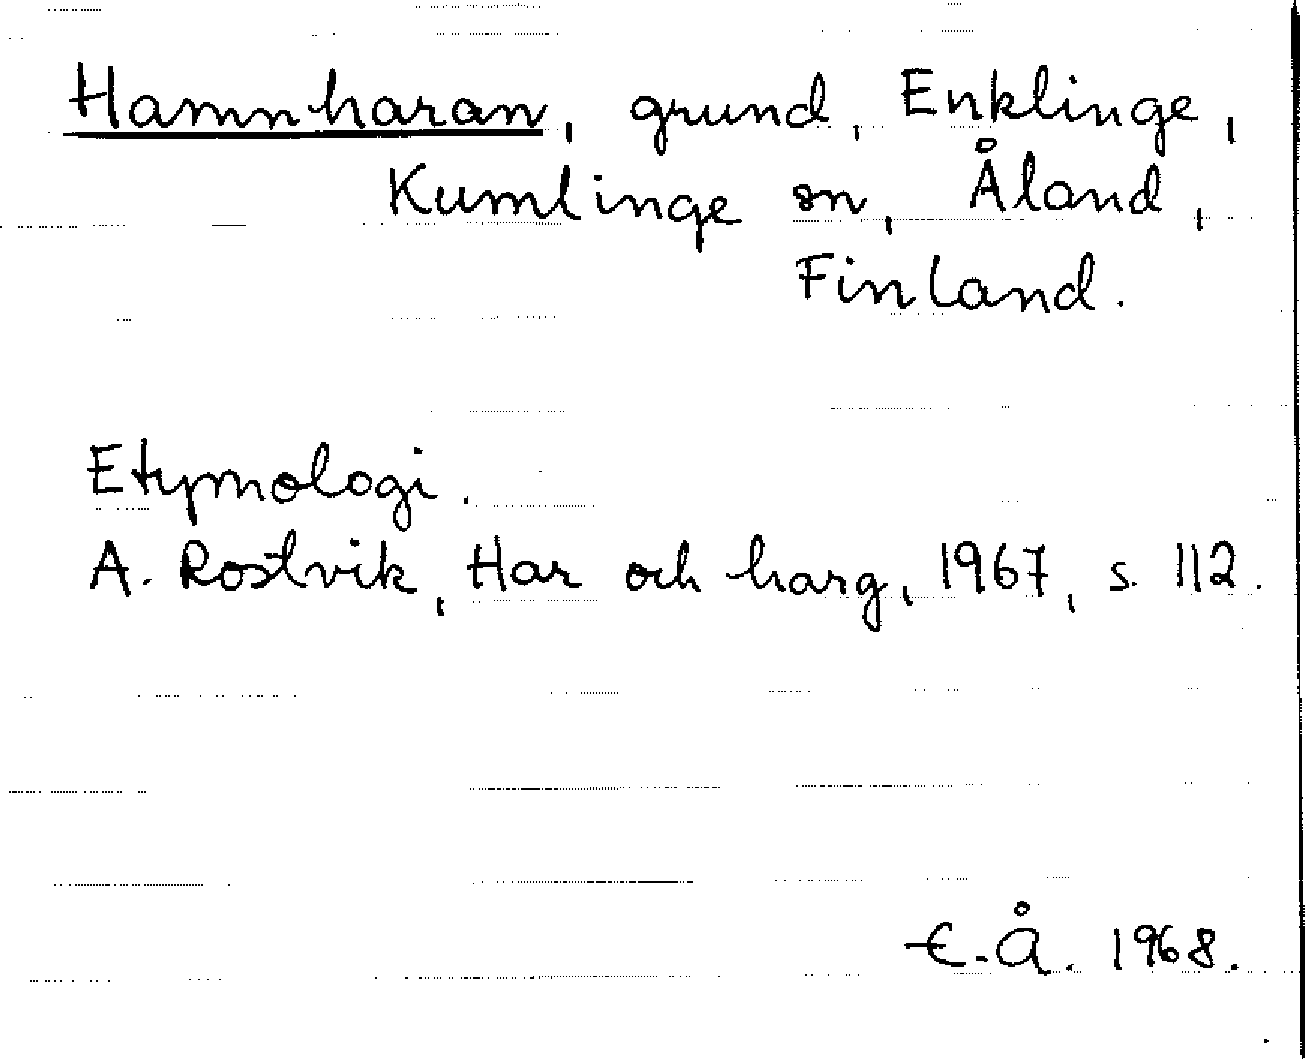 Hamnharan, grund, Enklinge,
Kumlinge sn, Åland,
Finland.
Etymologi.
A. Rostvik, Har och harg, 1967, s. 112.
E.Å. 1968.